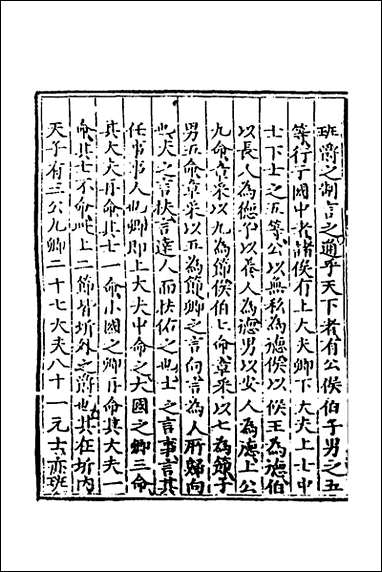 班爵之制言之通乎天下者有公侯伯子男之五
等行于國中者諸侯有上大夫卿下大夫上士中
士下士之五等公以無私為德侯以侯王為德伯
以長人為德子以養人為德男以安人為德上公
九命章采以九為節侯伯七命章采以七為節子
男五命章采以五為節卿之言向言為人所歸向
也大夫之言扶言達人而扶佑之也士之言事言其
任事事人也卿即上大夫中命之大國之卿三命
其大夫再命其士一命小國之卿再命其大夫一
命其士不命此上二節皆圻外之爵也其在圻內
天子有三公九卿二十七大夫八十一元士亦班